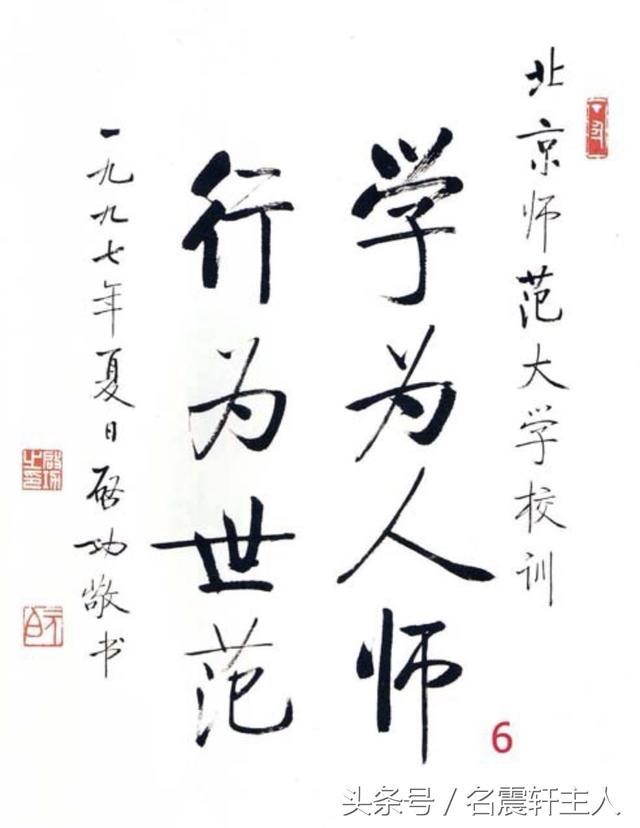 北京师范大学校训
学为人师
行为世范
一九九七年夏日启功敬书
启功之印
元白
6
头条号/名震轩主人